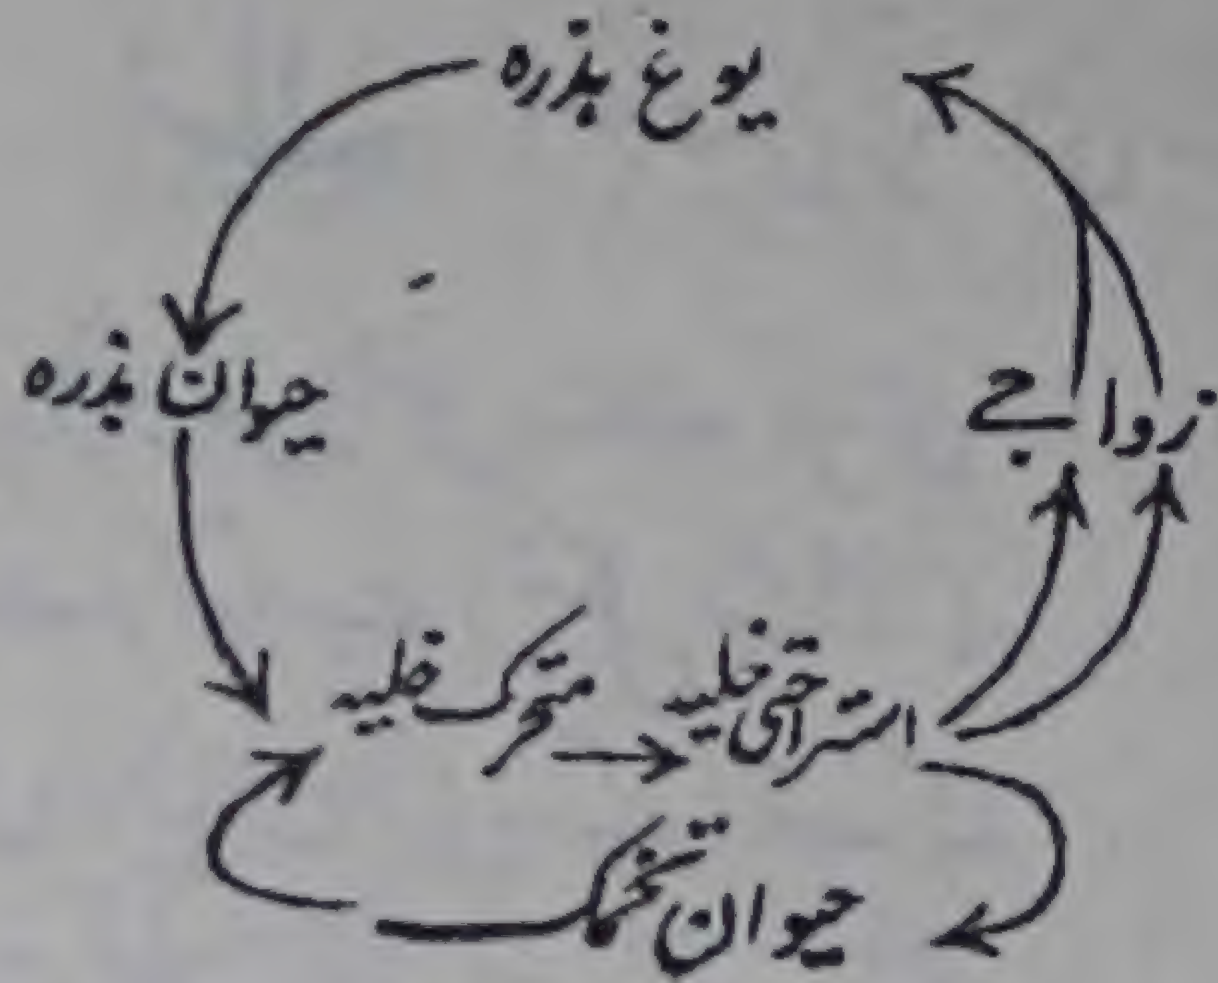 یوغ بذرہ
حیوان بذرہ
زواجے
متحرک خلیہ
استراحتی خلیہ
حیوان تخمک